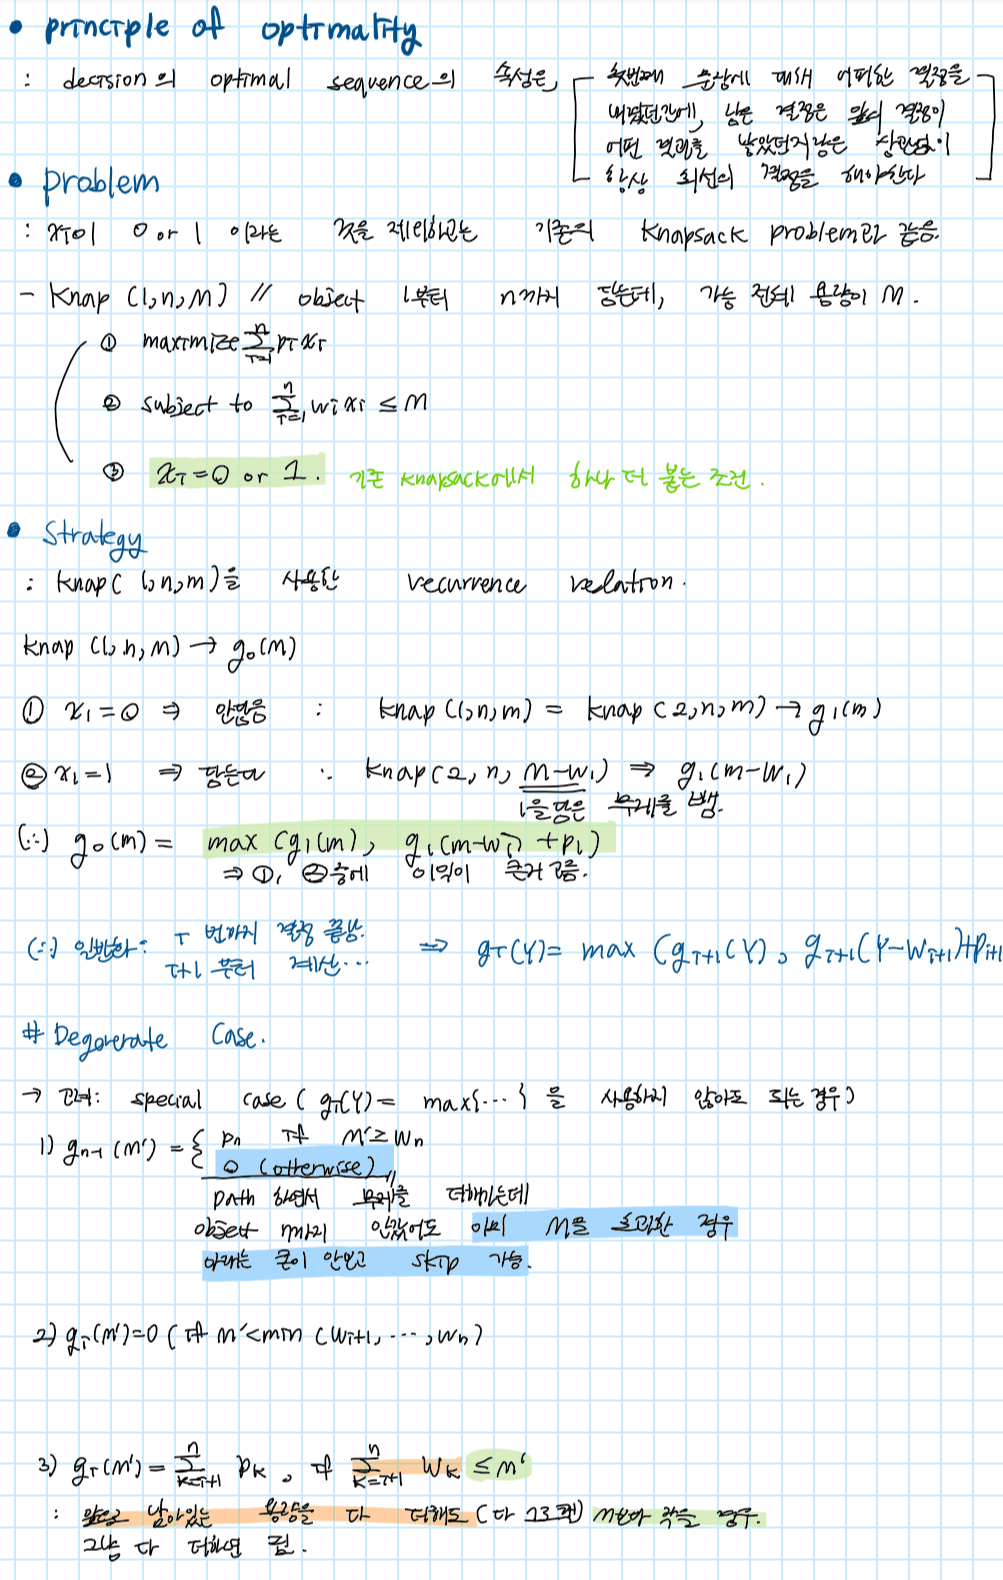 • principle of optimality
: decision의 optimal sequence의 속성은, 첫번째 순상에 대해 어떠한 결정을
내렸던간에, 남은 결정은 앞서 결정이
어떤 결과를 낳았던지같은 상관없이
항상 최선의 결정을 해야한다
• problem
: xi이 0 or 1 이라는 것을 제외하고는 기존의 knapsack problem과 같음.
- Knap (1,n,M) // object 1부터 n까지 담는데, 가능 전체 용량이 M.
① maximize Σ_{i=1}^{n} pi xi
② subject to Σ_{i=1}^{n} wi xi ≤ M
③ xi=0 or 1. 기존 knapsack에서 하나 더 붙는 조건.
• Strategy
: knap( 1,n,m)을 사용한 recurrence relation.
knap (1,n,M) → g₀(M)
① x₁=0 ⇒ 안담음 : knap(1,n,m) = knap(2,n,m) → g₁(m)
② x₁=1 ⇒ 담는다 ∴ knap(2, n, M-w₁) ⇒ g₁(m-w₁)
1을 담은 무게를 뺌.
(∴) g₀(m) = max (g₁(m), g₁(m-w₁) + p₁)
⇒ ①, ②중에 이익이 큰거 고름.
(∴) 일반화: i 번까지 결정 끝남. ⇒ gi(Y)= max (gi+1(Y), gi+1(Y-wi+1)+pi+1
i+1 부터 계산...
# Degenerate Case.
→ 고려: special case ( gi(Y)= max{...} 을 사용하지 않아도 되는 경우)
1) gn-1 (M') = { pn if M'≥wn
0 (otherwise)
path 하면서 무게를 더해가는데
object n까지 안갔어도 이미 M을 초과한 경우
아래는 굳이 안보고 skip 가능.
2) gi(M')=0 ( if m'<min (wi+1, ..., wn)
3) gi(M') = Σ_{k=i+1}^{n} pk , if Σ_{k=i+1}^{n} wk ≤m'
: 앞으로 남아있는 용량을 다 더해도 (다 골라도) M보다 작을 경우.
그냥 다 더하면 됨.